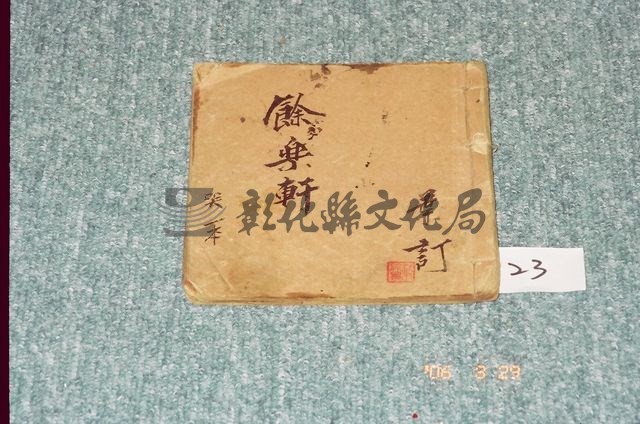 重訂
餘樂軒
彰化縣文化局
23
'06 3 29